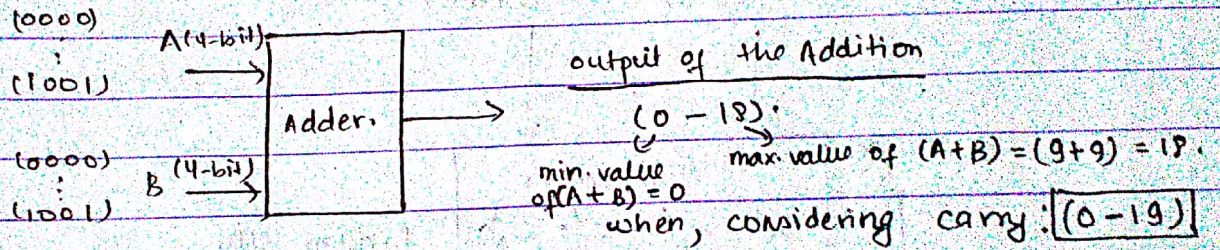 (0000)
⋮
(1001)
A(4-bit)
Adder.
(0000)
⋮
(1001)
B (4-bit)
output of the Addition
(0 – 18).
min. value
of(A + B) = 0
max. value of (A+B) = (9+9) = 18.
when, considering carry : (0 – 19)